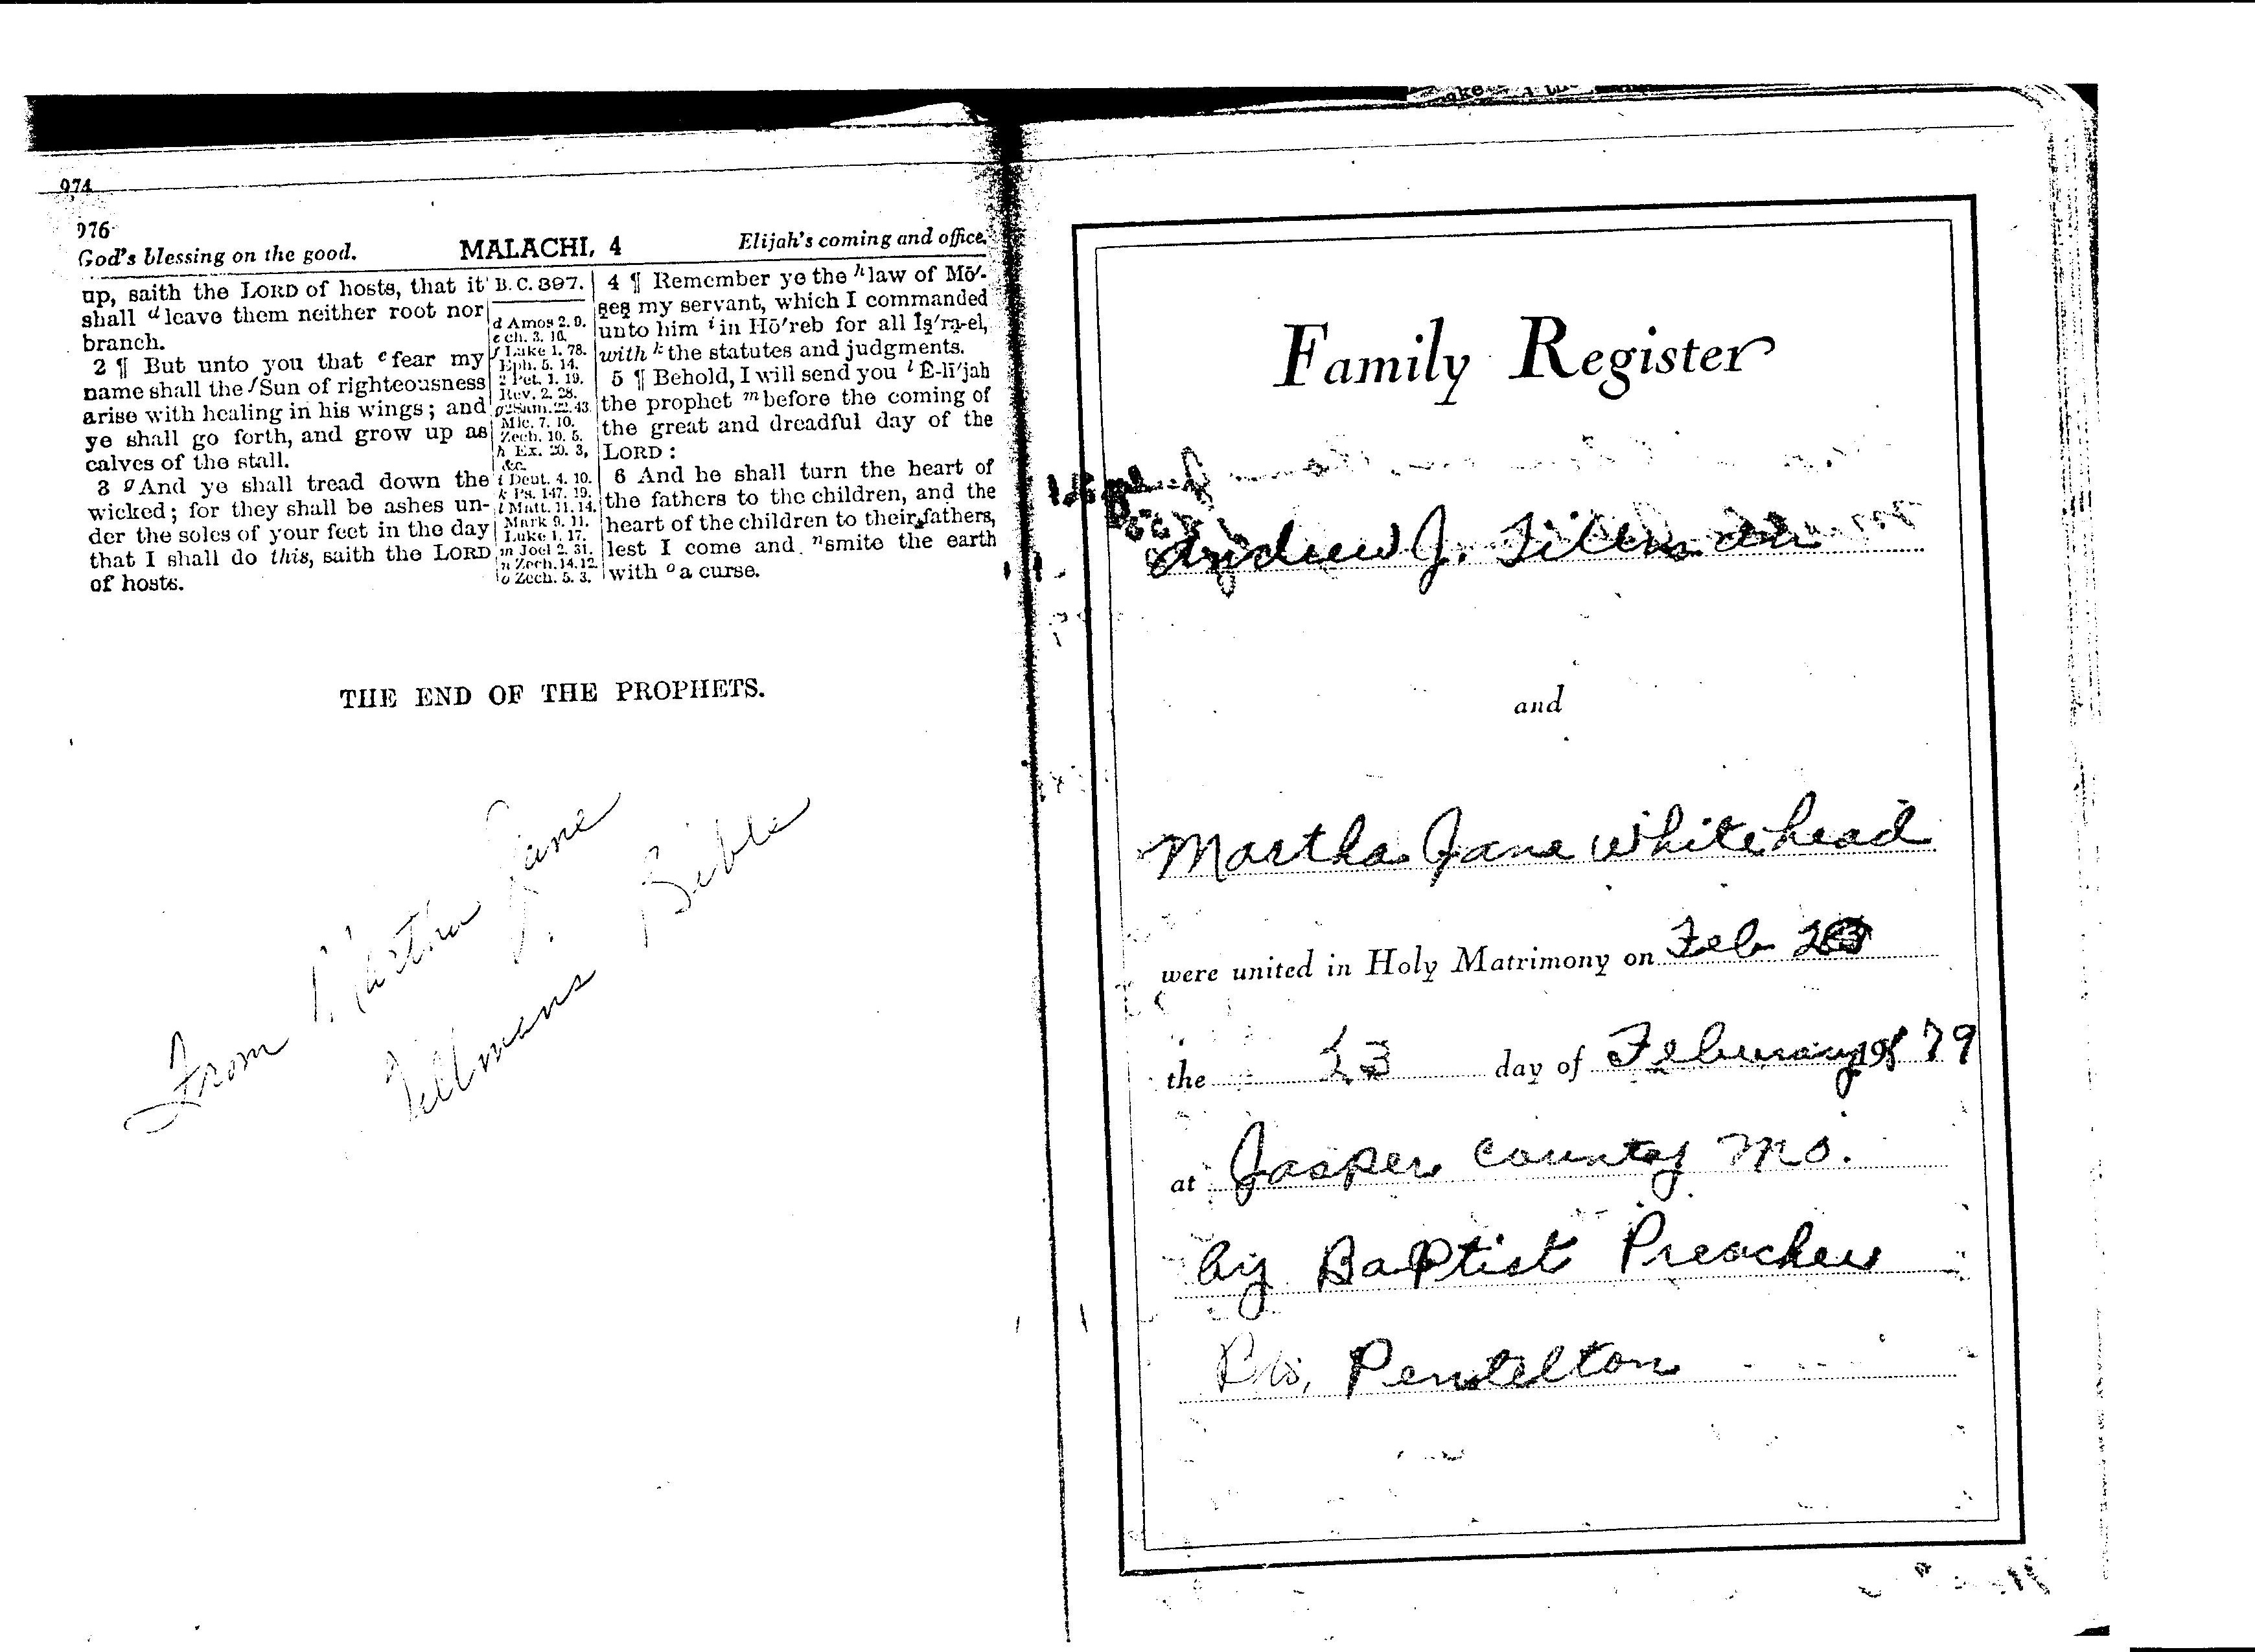 974
976
God's blessing on the good. MALACHI, 4 Elijah's coming and office.
up, saith the LORD of hosts, that it
shall d leave them neither root nor
branch.
2 ¶ But unto you that e fear my
name shall the f Sun of righteousness
arise with healing in his wings; and
ye shall go forth, and grow up as
calves of the stall.
3 g And ye shall tread down the
wicked; for they shall be ashes un-
der the soles of your feet in the day
that I shall do this, saith the LORD
of hosts.
B.C. 397.
d Amos 2. 9.
e ch. 3. 16.
f Luke 1. 78.
Eph. 5. 14.
2 Pet. 1. 19.
Rev. 2. 28.
g 2 Sam. 22. 43.
Mic. 7. 10.
Zech. 10. 5.
h Ex. 20. 3,
&c.
i Deut. 4. 10.
k Ps. 147. 19.
l Matt. 11. 14.
Mark 9. 11.
Luke 1. 17.
m Joel 2. 31.
n Zech. 14. 12.
o Zech. 5. 3.
4 ¶ Remember ye the h law of Mō'-
ṣeṣ my servant, which I commanded
unto him i in Hō'reb for all Ĭṣ'rạ-el,
with k the statutes and judgments.
5 ¶ Behold, I will send you l Ē-lī'jah
the prophet m before the coming of
the great and dreadful day of the
LORD:
6 And he shall turn the heart of
the fathers to the children, and the
heart of the children to their fathers,
lest I come and n smite the earth
with o a curse.
THE END OF THE PROPHETS.
From Martha Jane
Tillmans Bible
Family Register
Andrew J. Tillman
and
Martha Jane Whitehead
were united in Holy Matrimony on Feb
the 23 day of February 1879
at Jasper County Mo.
by Baptist Preacher
Pentelton